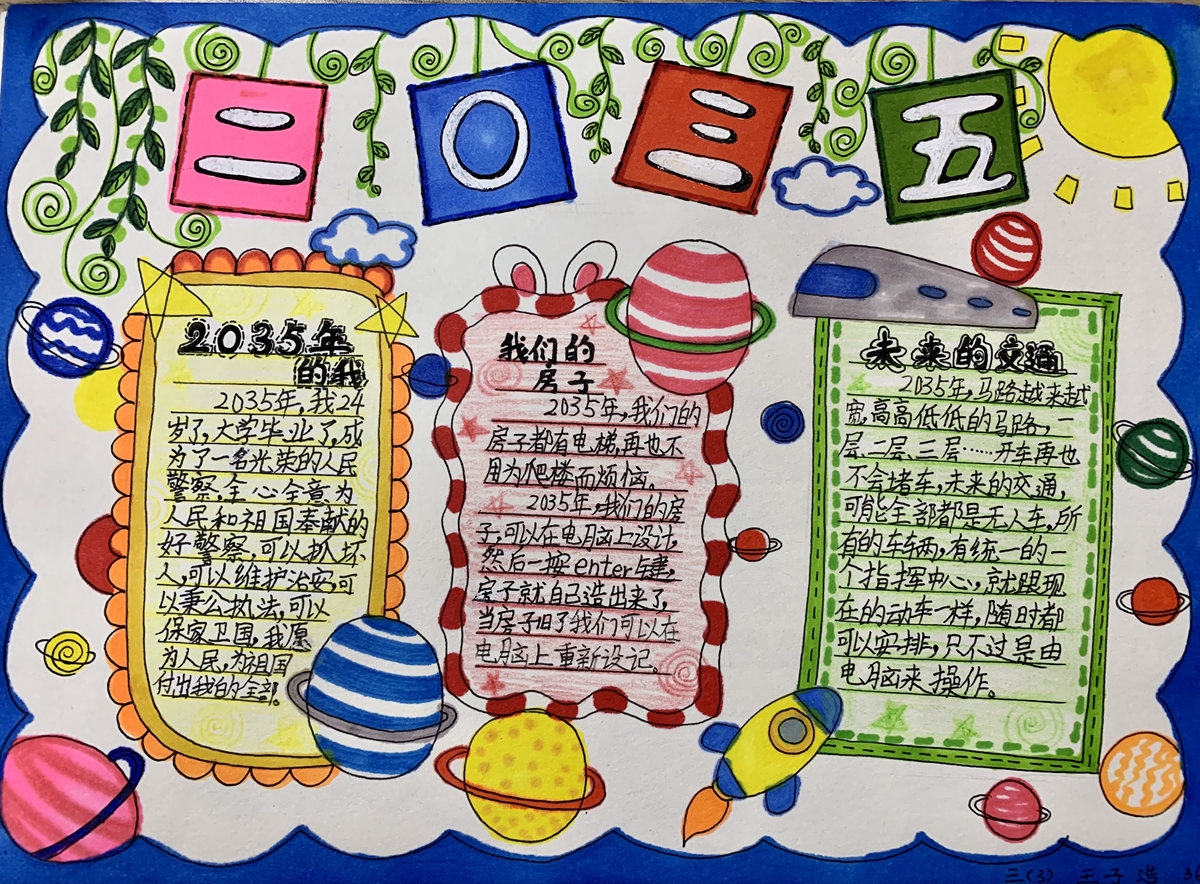 二〇三五
2035年
的我
2035年,我24
岁了,大学毕业了,成
为了一名光荣的人民
警察,全心全意为
人民和祖国奉献的
好警察,可以抓坏
人,可以维护治安,可
以秉公执法,可以
保家卫国,我愿
为人民,为祖国
付出我的全部。
我们的
房子
2035年,我们的
房子都有电梯,再也不
用为爬楼而烦恼。
2035年,我们的房
子,可以在电脑上设计,
然后一按enter键,
房子就自己造出来了,
当房子旧了我们可以在
电脑上重新设记。
未来的交通
2035年,马路越来越
宽,高高低低的马路,一
层、二层、三层……开车再也
不会堵车,未来的交通,
可能全部都是无人车,所
有的车辆,有统一的一
个指挥中心,就跟现
在的动车一样,随时都
可以安排,只不过是由
电脑来操作。
三(3) 王子浩